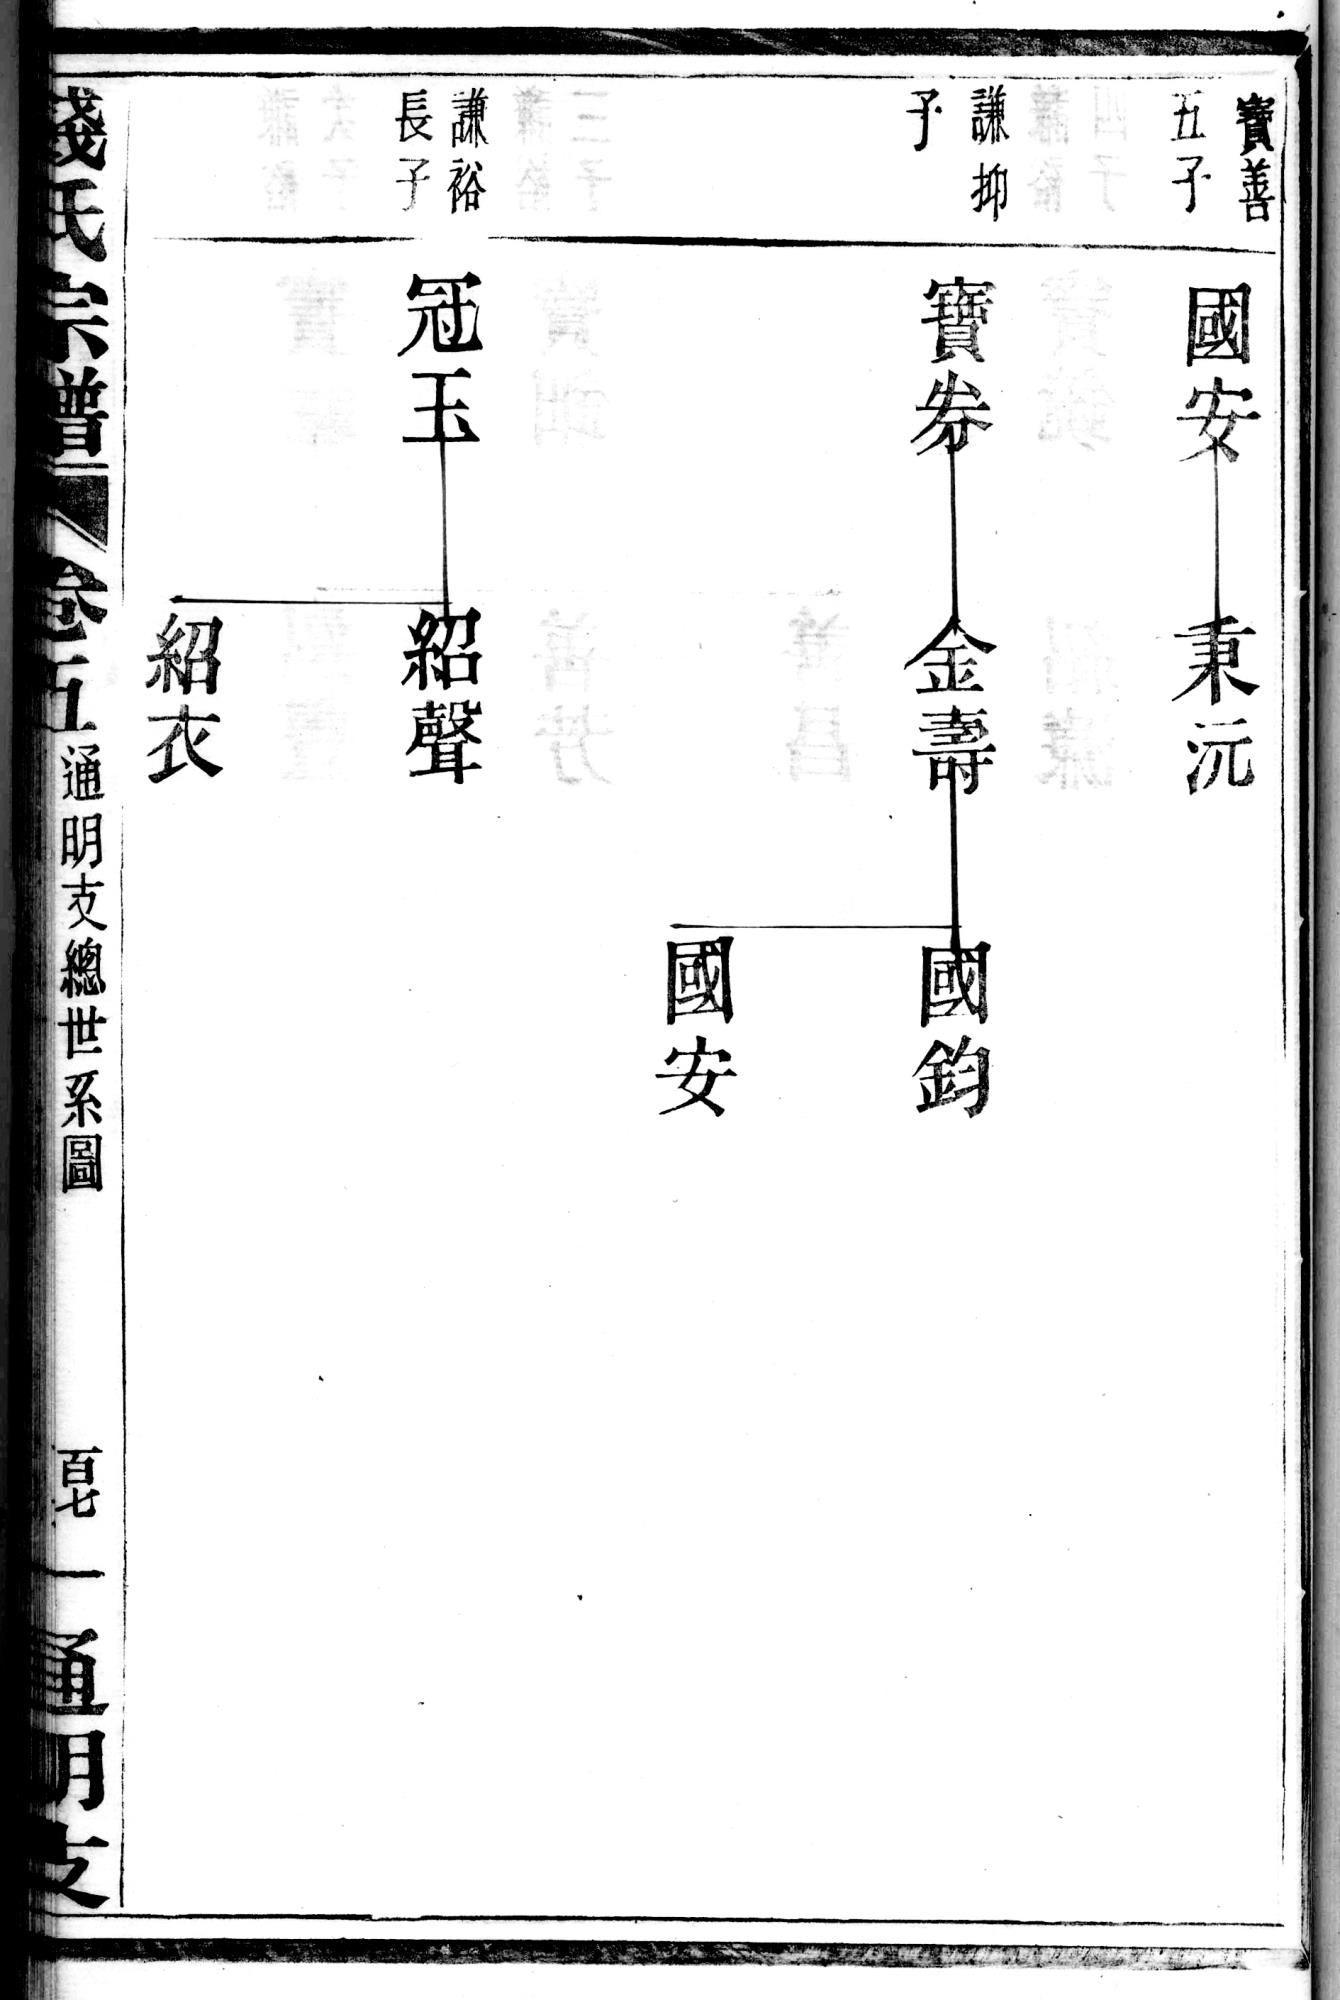 寶善
五子
國安
秉沅
謙抑
子
寶劵
金壽
國鈞
國安
謙裕
長子
冠玉
紹聲
紹衣
錢氏宗譜
卷五
通明支總世系圖
百七
一
通明支